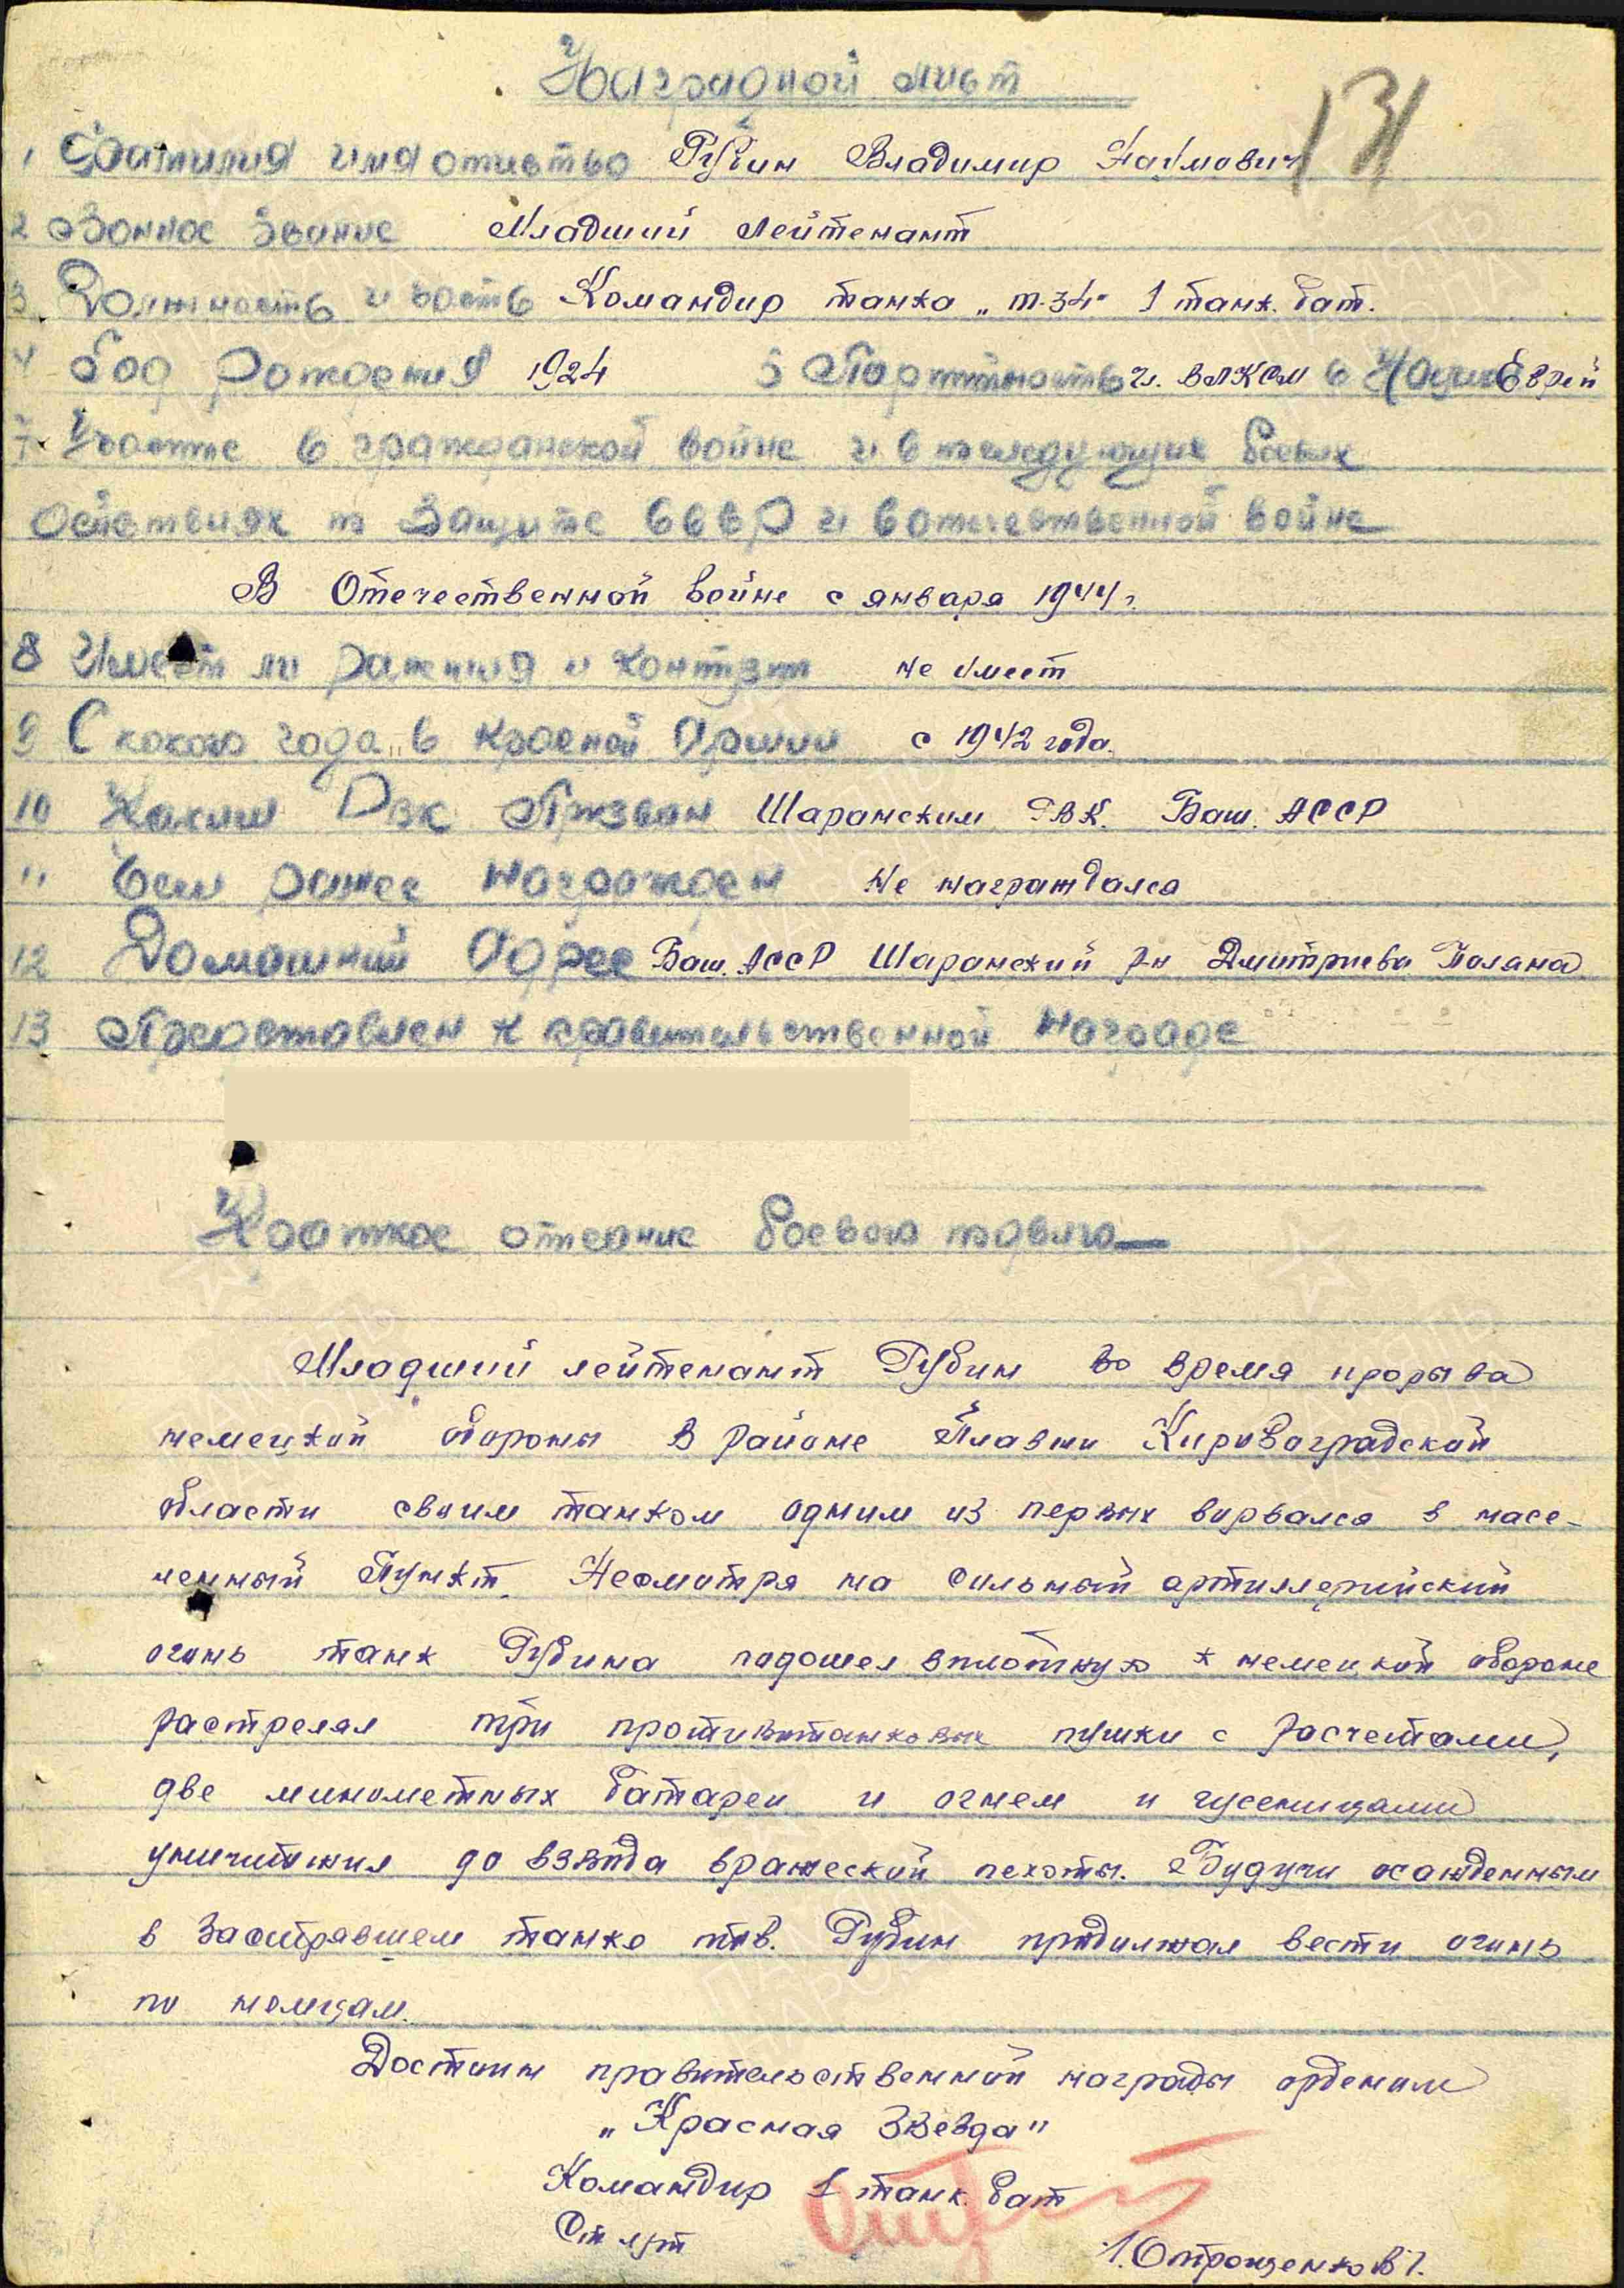 Наградной лист
131
1 Фамилия имя отчество Рубин Владимир Наумович
2 Воинное звание Младший лейтенант
3 Должность и часть Командир танка „т-34" 1 танк. бат.
4 Год рождения 1924 5 Партийность чл. ВЛКСМ 6 Национ Еврей
7 Участие в гражданской войне и в последующих боевых
действиях по защите СССР и в отечественной войне
В Отечественной войне с января 1944 г.
8 Имеет ли ранения и контузии не имеет
9 С какого года в красной Армии с 1942 года.
10 Каким Рвк Призван Шаранским РВК. Баш. АССР
11 Чем ранее награжден не награждался
12 Домашний Адрес Баш. АССР Шаранский р-н Дмитриева Поляна
13 Представлен к правительственной награде
Краткое описание боевого подвига
Младший лейтенант Рубин во время прорыва
немецкой обороны в районе Плавни Кировоградской
области своим танком одним из первых ворвался в насе-
ленный Пункт. Несмотря на сильный артиллерийский
огонь танк Рубина подошел вплотную к немецкой обороне
растрелял три противотанковых пушки с расчетами,
две минометных батареи и огнем и гусеницами
уничтожил до взвода вражеской пехоты. Будучи осажденным
в застрявшем танке тов. Рубин продолжал вести огонь
по немцам.
Достоин правительственной награды орденом
„Красная Звезда"
Командир 1 танк. бат
Ст л-нт
Отрощенков